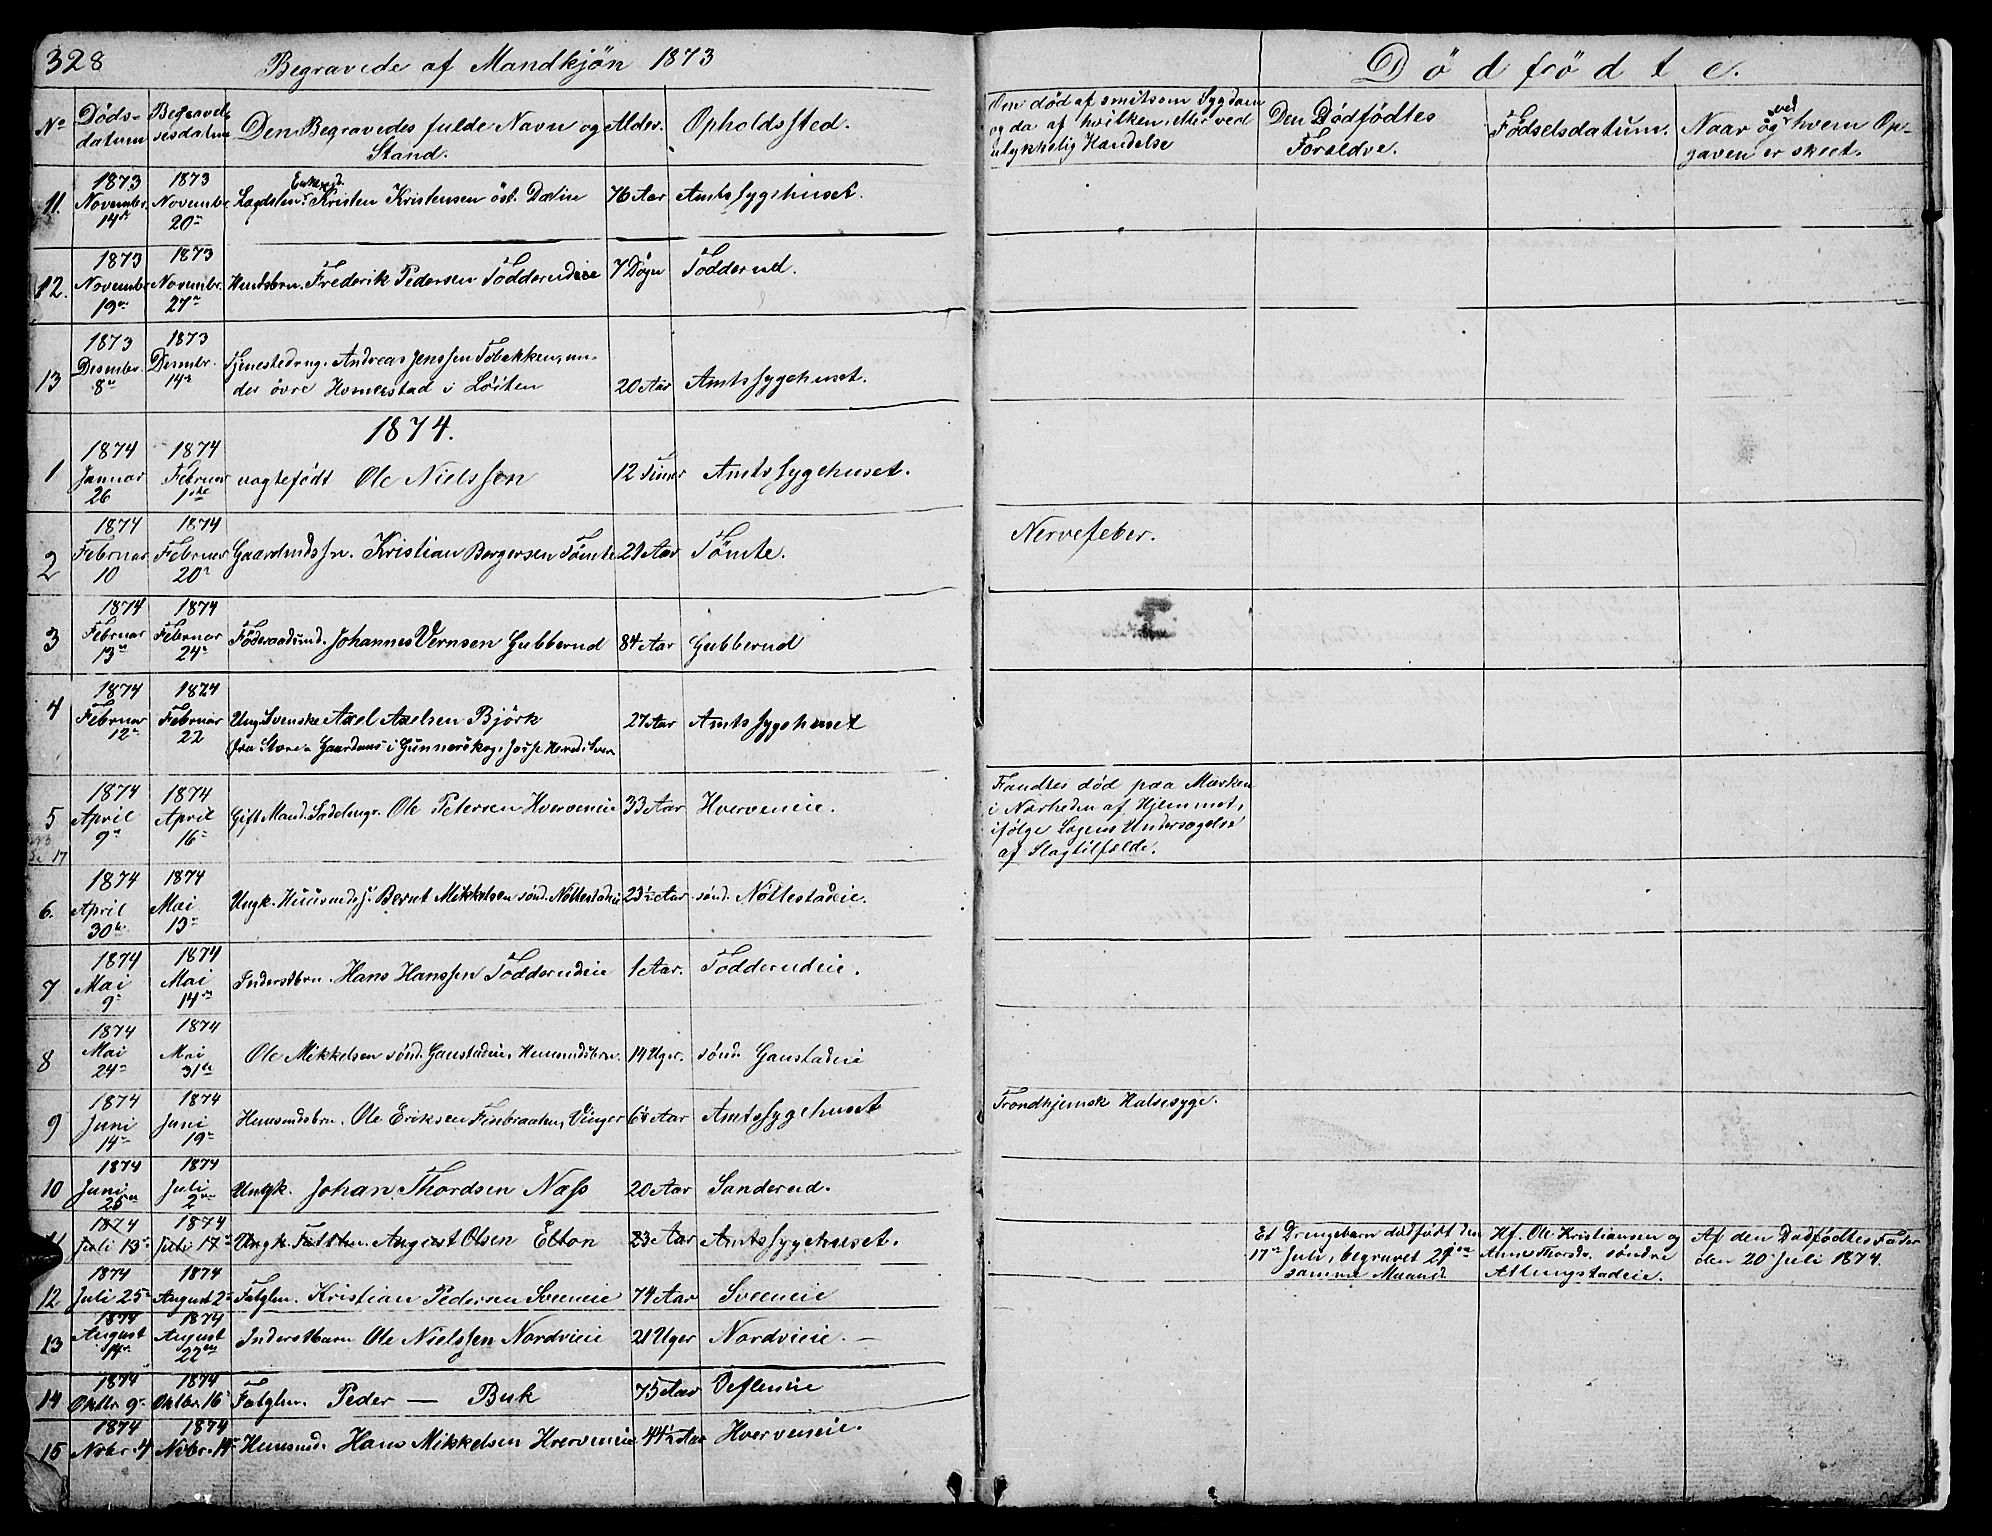 328
Begravede af Mandkjön 1873
Dødfødte.
No Dødsdatum Begravelsesdatum Den Begravedes fulde Navn og Stand. Alder. Opholdssted.
Om død af smitsom Sygdom og da af hvilken, eller ved ulykkelig Handelse
Den Dødfødtes Foraldre.
Fødselsdatum.
Naar og ved hvem Opgaven er skeet.
11. 1873 Novembr. 14de 1873 Novembr. 20n Enkemd. Kristen Kristensen öst. Dælin 76 Aar Amtssygehuset.
12. 1873 Novembr. 19n 1873 Novembr. 27n Husmbrn. Frederik Pedersen Todderudeie 7 Døgn Todderud.
13 1873 Desmbr. 8n 1873 Desmbr. 14n Tjenestedrng. Andreas Jenssen Tobakken, under övre Homerstad i Löiten 20 Aar Amtssygehuset.
1874.
1 1874 Januar 26 1874 Februar 1ste vogtefödt Ole Nielssen 12 Timer Amtssygehuset.
2 1874 Februar 10 1874 Februar 20n Gaardmdssn. Kristian Bergersen Tömte 21 Aar Tömte. Nervefeber.
3 1874 Februar 13n 1874 Februar 24n Föderaadsmd. Johannes Vernsen Gubberud 84 Aar Gubberud
4 1874 Februar 12n 1874 Februar 22 Ung. Svenske Axel Axelsen Björk 27 Aar Amtssygehuset
fra Store Gaardens i Gunnerskog
5 1874 April 9n 1874 April 16n Gift Mand. Sadelmgr. Ole Petersen Hverveneie 33 Aar Hverveneie. Fandtes død paa Marken
i Nærheden af Hjemmet,
ifölge Lægens Undersøgelse
af Slagtilfælde.
6. 1874 April 30te 1874 Mai 13n Ungk. Huusmdss. Bernt Mikkelsen sönd. Nöttestadeie 23½ Aar sönd. Nöttestadeie.
7 1874 Mai 9n 1874 Mai 14n Inderstbrn. Hans Hanssen Todderudeie 1 Aar. Todderudeie.
8 1874 Mai 24n 1874 Mai 31te Ole Mikkelsen sönd. Gaustadeie, Husmndsbrn. 14 Uger. sönd. Gaustadeie
9 1874 Juni 14n 1874 Juni 19n Husmndsbrn. Ole Eriksen Finbraaten, Vinger Aar Amtssygehuset Trondhjemsk Halssyge.
10 1874 Juni 25n 1874 Juli 2n Ungk. Johan Thordsen Næss 20 Aar Sanderud.
11 1874 Juli 13n 1874 Juli 17n Ungk. Fattlm. August Olsen Elton 23 Aar Amtssygehuset. Et Drengebarn dødfødt den 17n Juli, begravet 21n samme Maaned Hf. Ole Kristiansen og Anne Thorsdr. söndre Attungstadeie. Af den Dødfødtes Fader den 20n Juli 1874.
12 1874 Juli 25n 1874 August 2n Fatglm. Kristian Pedersen Sveeneie 74 Aar Sveeneie
13 1874 August 14n 1874 August 22n Inderstbarn Ole Nielssen Nordvieie 21 Uger Nordvieie. —
14 1874 Oktbr. 9n 1874 Oktbr. 16n Fatglm. Peder — Buk 75 Aar Defleneie
15 1874 Nvbr. 4 1874 Nvbr. 14n Husmnd. Hans Mikkelsen Hverveneie 44½ Aar Hverveneie.